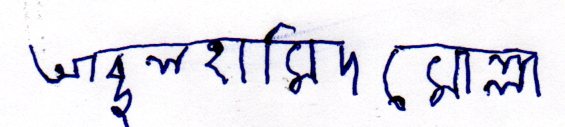 আব্দুল হামিদ মোল্লা